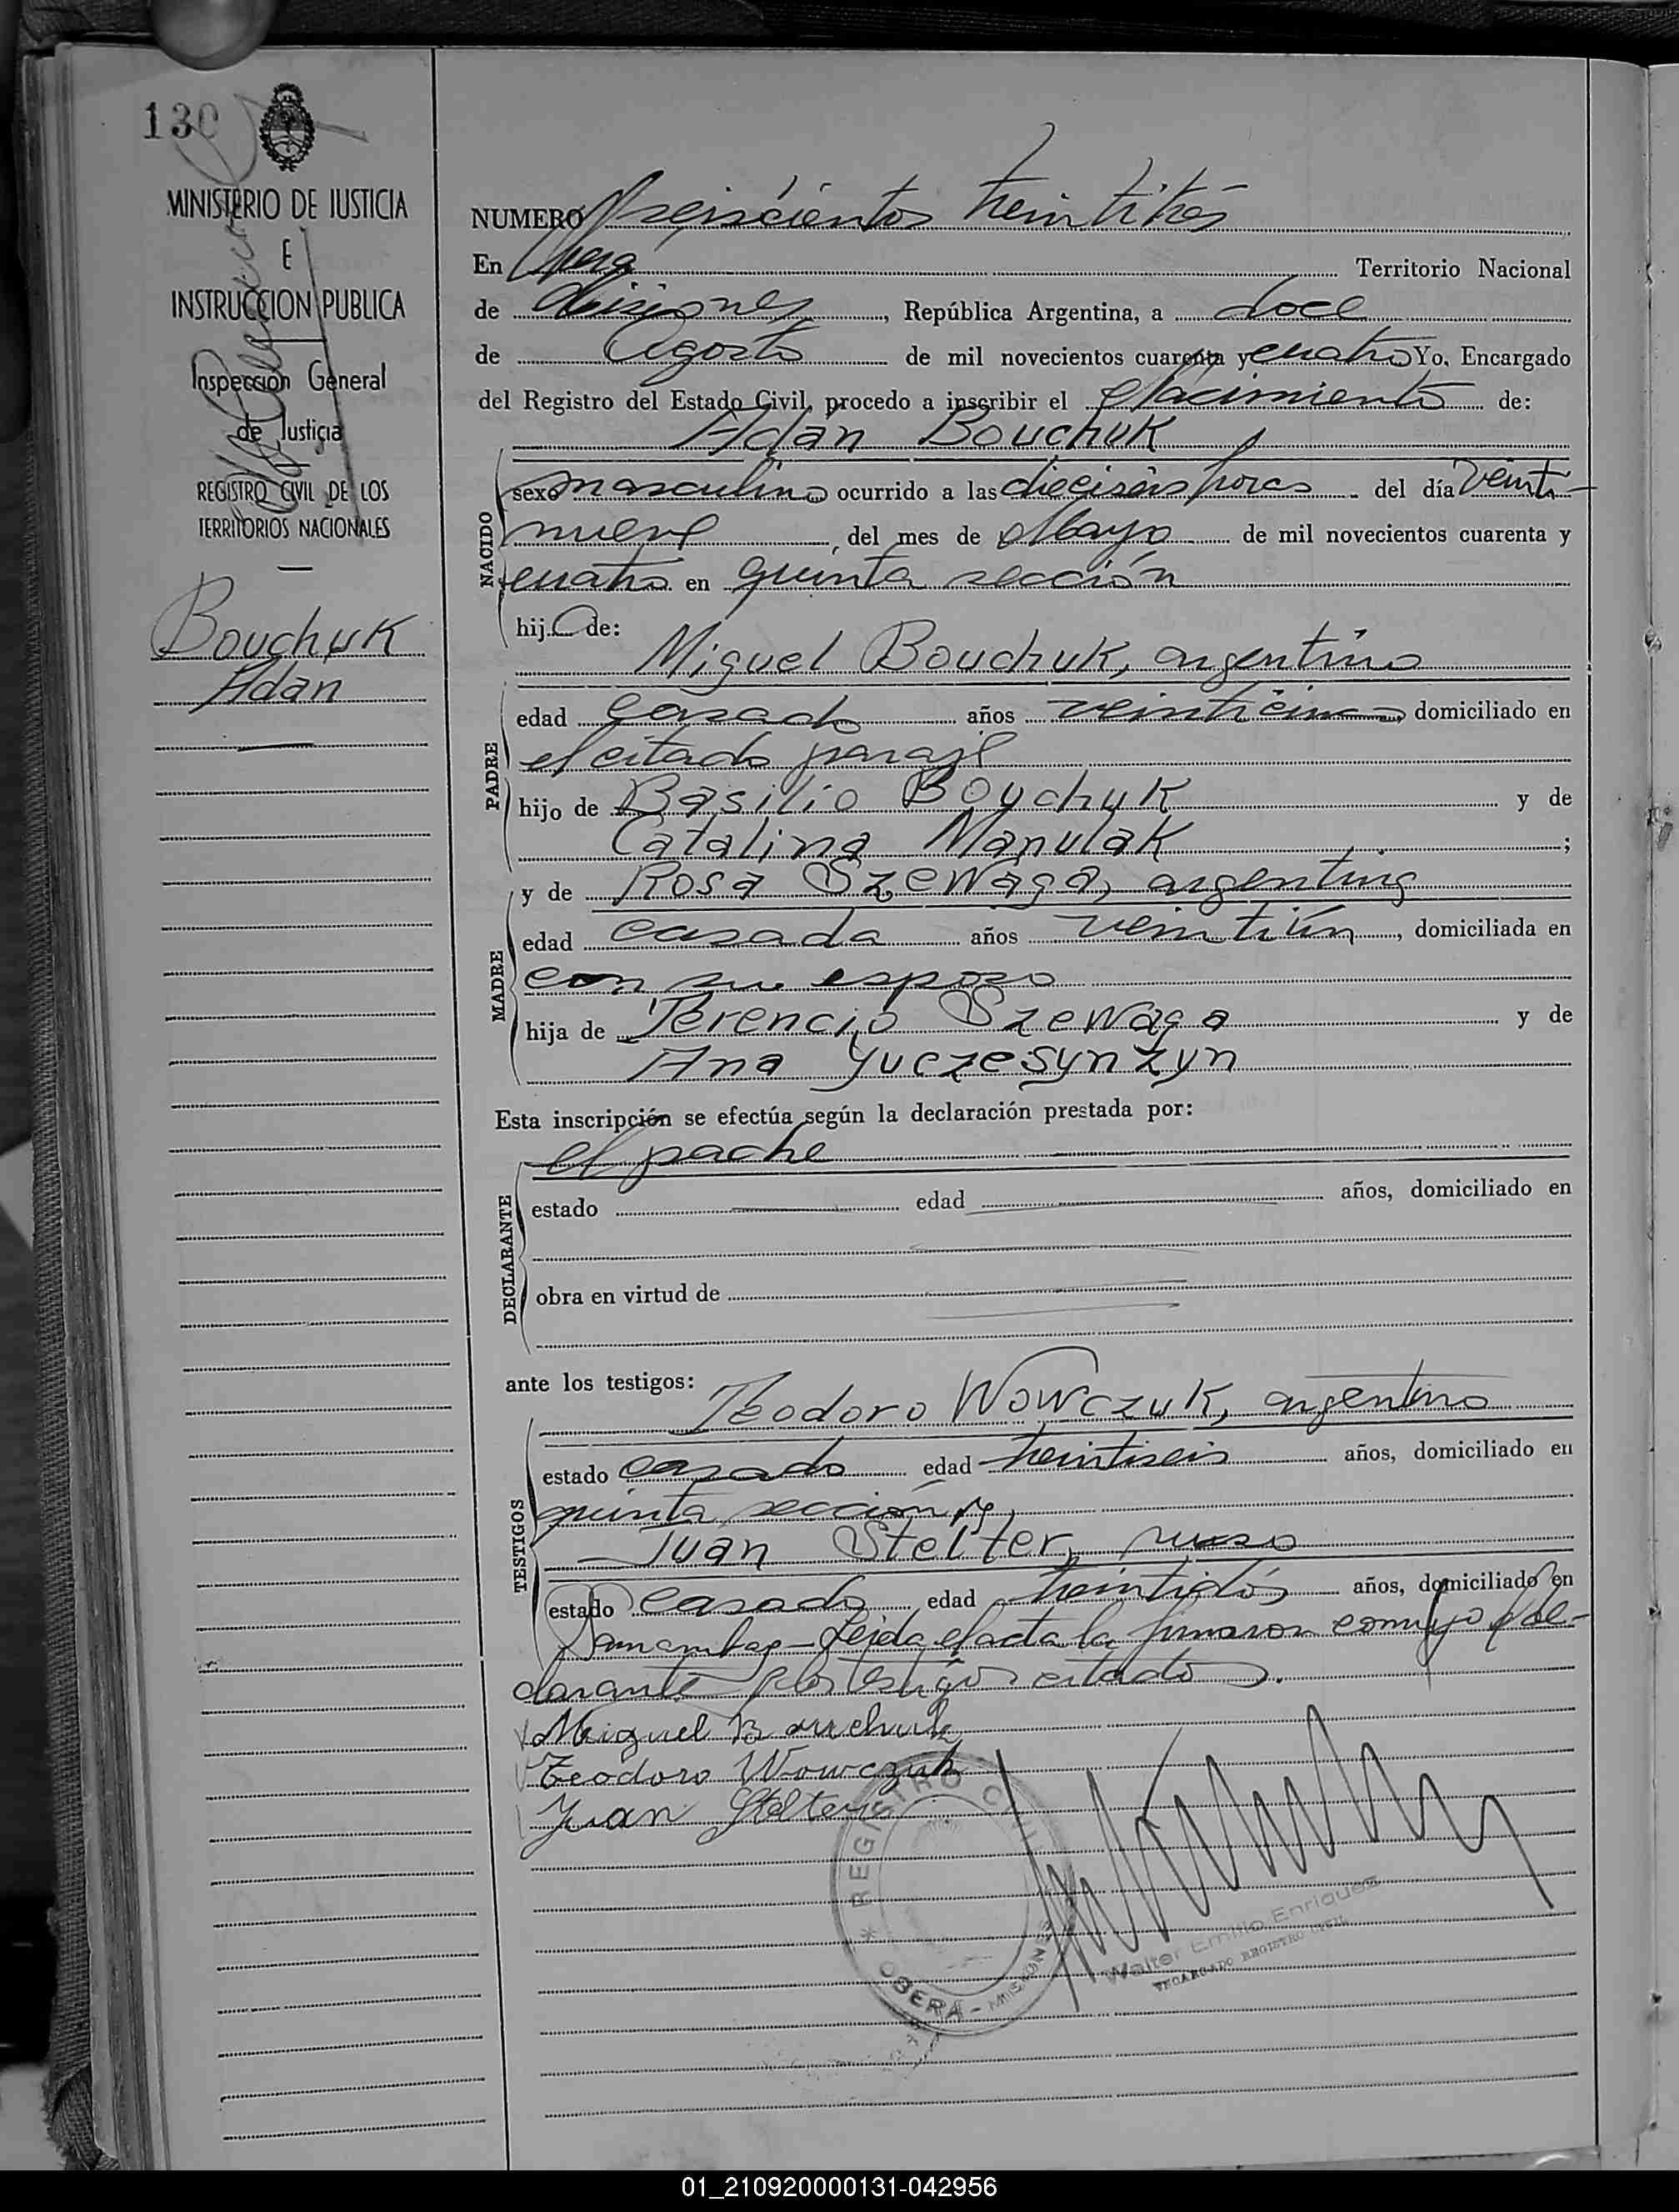 130
MINISTERIO DE JUSTICIA
E
INSTRUCCION PUBLICA
Inspección General
de Justicia
REGISTRO CIVIL DE LOS
TERRITORIOS NACIONALES
Bouchuk
Adan
NUMERO seiscientos treintitrés
En Obera Territorio Nacional
de Misiones, República Argentina, a doce
de Agosto de mil novecientos cuarenta y cuatro Yo, Encargado
del Registro del Estado Civil, procedo a inscribir el Nacimiento de:
Adan Bouchuk
NACIDO
sexo masculino ocurrido a las dieciseis horas del día veinti-
nueve, del mes de Mayo de mil novecientos cuarenta y
cuatro en quinta sección
hijo de:
Miguel Bouchuk, argentino
PADRE
edad casado años veinticinco, domiciliado en
el citado paraje
hijo de Basilio Bouchuk y de
Catalina Manulak;
MADRE
y de Rosa Szewaga, argentina
edad casada años veintiún, domiciliada en
con su esposo
hija de Terencio Szewaga y de
Ana Juczesynzyn
Esta inscripción se efectúa según la declaración prestada por:
el padre
DECLARANTE
estado edad años, domiciliado en
obra en virtud de
ante los testigos:
Teodoro Wowczuk, argentino
TESTIGOS
estado casado edad treintiseis años, domiciliado en
quinta sección y
Juan Stelter, ruso
estado casado edad treintidós años, domiciliado en
Leida el acta la firmaron conmigo el de-
clarante y los testigos citados.
Miguel Bauchuk
Teodoro Wowczuk
Juan Stelter
REGISTRO CIVIL
* OBERA - MISIONES
Walter Emilio Enriquez
ENCARGADO REGISTRO CIVIL
01_210920000131-042956